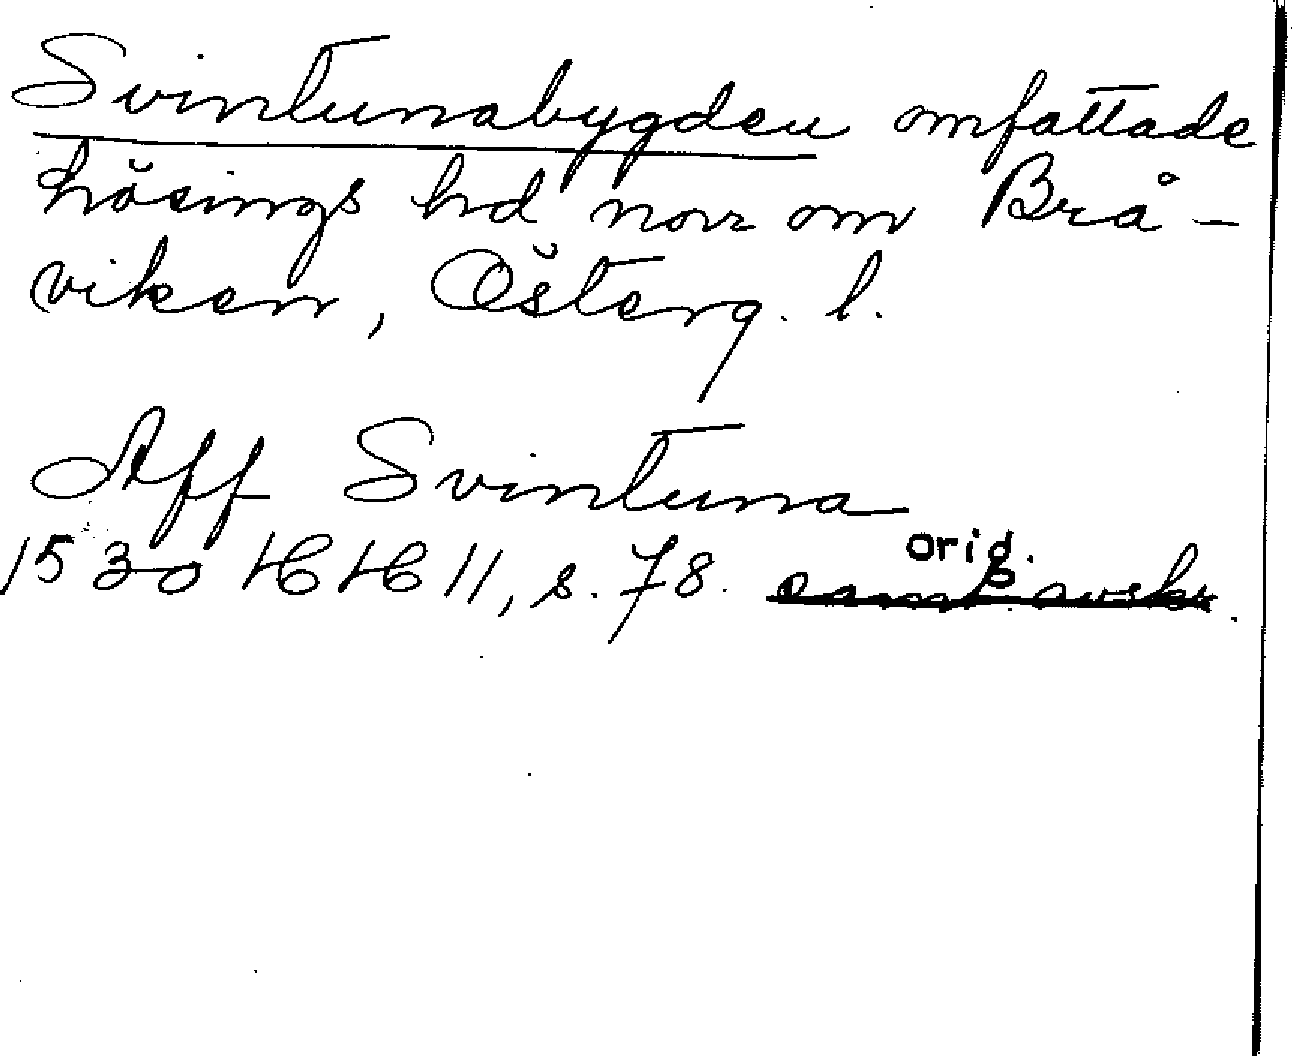 Svintunabygden omfattade
Lösings hd norr om Brå-
viken, Österg. l.
Aff Svintuna
orig.
1530 HH 11, s. 78. samt. avskr.